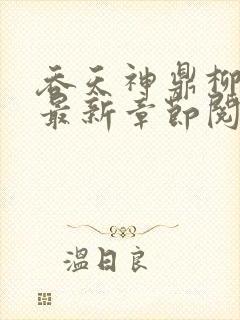 吞天神鼎柳
最新章节阅
温日良